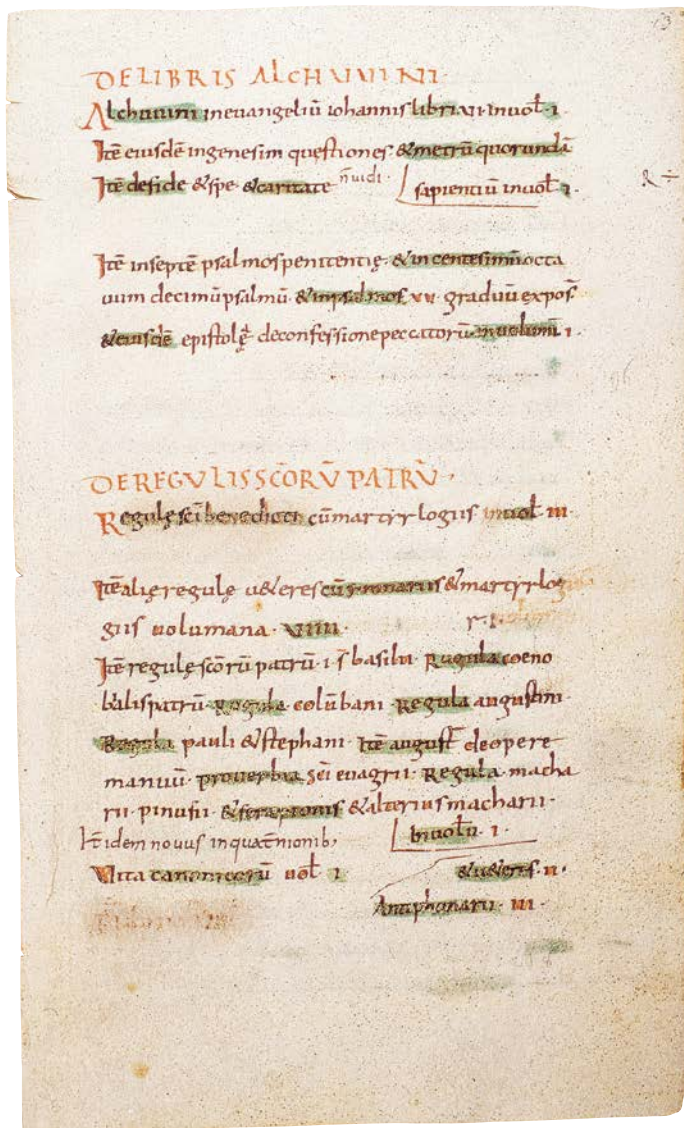 13
DE LIBRIS ALCHUUINI
Alchuuini in euangeliū iohannis libri VII in uoł I.
Itē eiusdē in genesim questiones & metrū quorundā
Itē de fide & spe & caritate n̄ uidi. sapientiū in uoł I.
Itē in septē psalmos penitentię & in centesimū octa
uum decimū psalmū & in psalmos XV graduū expos̄
& eiusdē epistolę de confessione peccatorū in uolum̄ I.
DE REGULIS SC̄ORŪ PATRŪ
Regulę sc̄i benedicti cū martyrlogiis in uoł III.
Itē alię regulę ueteres cū & martyrlo
giis uolumina VIIII.
Itē regulę sc̄orū patrū .I. s̄ basilii Regula coeno
bialis patrū Regula colūbani Regula augustini
Regula pauli & stephani Itē augusī de opere
manuū prouerbia sc̄i euagrii Regula macha
rii pinufii & serapionis & alterius macharii
It̄ idem nouus in quat̄nionib; in uolū I.
Uita canonicorū uoł I & ueteres II.
Antiphonarii III.